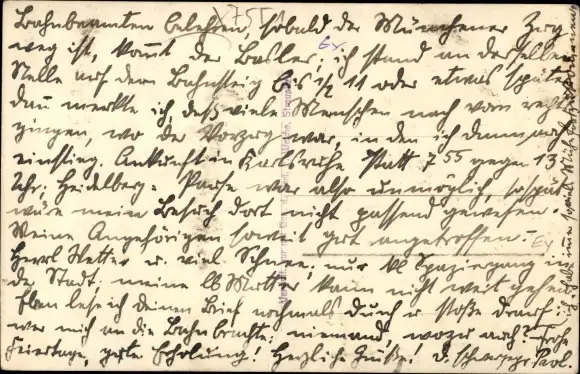 Bahnbeamten belehren, sobald der Münchener Zug
weg ist, kommt der Basler; ich stand an derselben
Stelle auf dem Bahnsteig bis 1/2 11 oder etwas später
dann merkte ich, daß viele Menschen nach vorn rechts
gingen, wo der Vorzug war, in den ich dann auch
einstieg. Ankunft in Karlsruhe statt 7 55 gegen 13
Uhr; Heidelberg = Pause war also unmöglich, so spät
wäre mein Besuch dort nicht passend gewesen. -
Meine Angehörigen soweit gut angetroffen. -
Herrl. Wetter u. viel Schnee, nur kl Spaziergang in
der Stadt; meine lb Mutter kann nicht weit gehen
Eben lese ich deinen Brief nochmals durch u stoße drauf:
wer mich an die Bahn brachte: niemand, wozu auch? Frohe
Feiertage, gute Erholung! Herzliche Grüße! D.
755